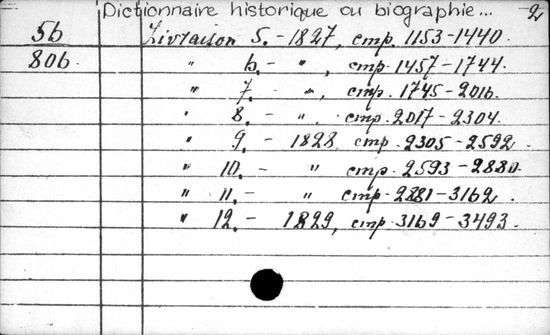 Dictionnaire historique ou biographie... 2
5b Livraison 5. - 1827, cmp. 1153-1440.
80b " 6. - ", cmp. 1457-1744.
" 7. - ", cmp. 1745-2016.
" 8. - ", cmp. 2017-2304.
" 9. - 1828, cmp. 2305-2592.
" 10. - " cmp. 2593-2880.
" 11. - " cmp. 2881-3162.
" 12. - 1829, cmp. 3169-3493.